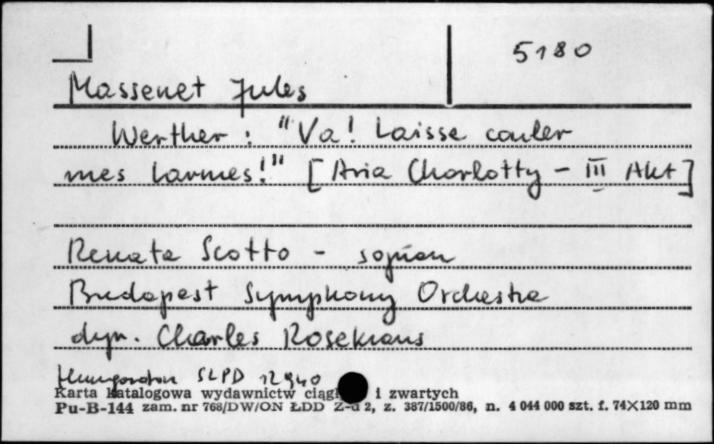 5180
Massenet Jules
Werther : "Va! Laisse couler
mes larmes!" [Aria Charlotty - III Akt]
Renata Scotto - sopran
Budapest Symphony Orchestra
dyr. Charles Rosekrans
Hungaroton SLPD 12940
Karta katalogowa wydawnictw i zwartych
Pu-B-144 zam. nr 768/DW/ON ŁDD 2, z. 387/1500/86, n. 4 044 000 szt. f. 74X120 mm